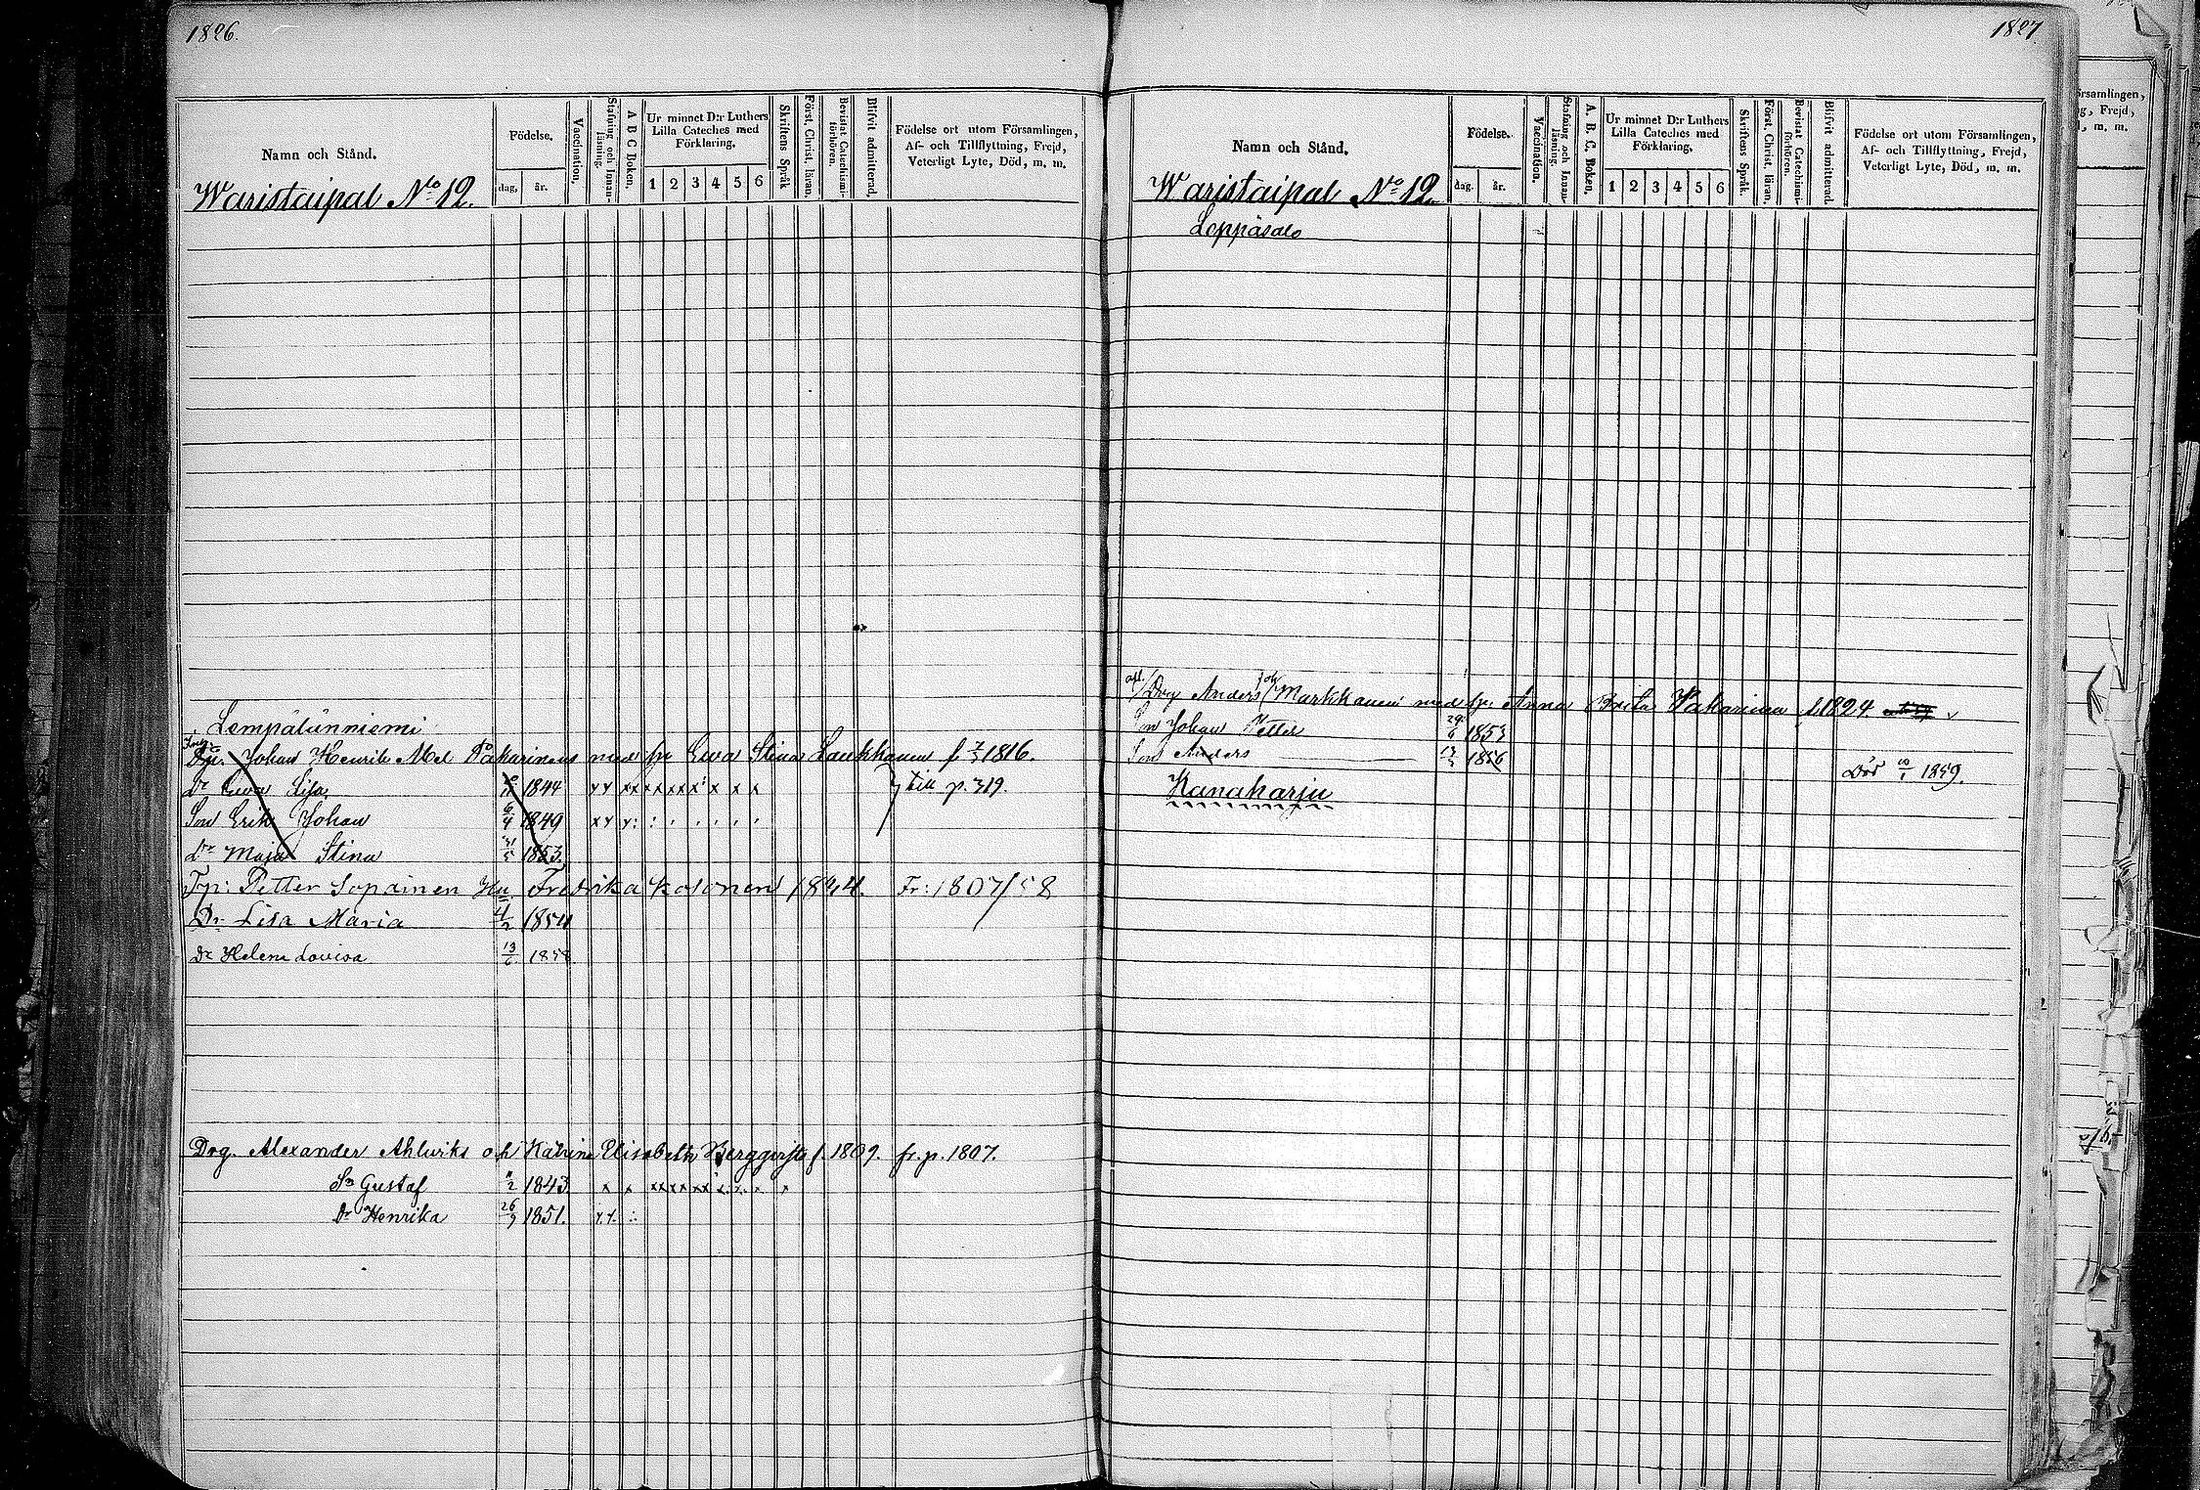 1826.
Namn och Stånd.
Födelse.
dag, år.
Vaccination,
Stafning och Innan-läsning.
A B C Boken,
Ur minnet D:r Luthers Lilla Cateches med Förklaring.
1 2 3 4 5 6
Skriftens Språk
Först. Christ. läran.
Bevistat Catechismi-förhören.
Blifvit admitterad,
Födelse ort utom Församlingen,
Af- och Tillflyttning, Frejd,
Veterligt Lyte, Död, m. m.
Waristaipal No 12.
Lempälänniemi
Johan Henrik Mel Pakarinens med hu Ewa Stina Laukkanen f 1816.
Dr Ewa Lisa 1844 till p. 319.
Son Erik Johan 6/4 1849
Dr Maja Stina 31/5 1853.
Trp: Petter Sopainen Hu Fredrika Kosonen 1824. Fr: 1807/58
Dr Lisa Maria 4/2 1854
Dr Helena Lovisa 13/6 1858
Drg. Alexander Ahlwiks och Katrina Elisabeth f. 1809. fr. p. 1807.
Sn Gustaf 1843
Dr Henrika 26/9 1851.
1827
Namn och Stånd.
Födelse.
dag. år.
Vaccination.
Stafning och Innan-läsning.
A. B. C. Boken.
Ur minnet D:r Luthers Lilla Cateches med Förklaring.
1 2 3 4 5 6
Skriftens Språk.
Först. Christ. läran.
Bevistat Catechismi-förhören.
Blifvit admitterad.
Födelse ort utom Församlingen,
Af- och Tillflyttning, Frejd,
Veterligt Lyte, Död, m. m.
Waristaipal No 12.
Leppäsalo
afl. Drg Anders Joh Markkanen med hu: Anna Brita Pakarinen f. 1824.
Son Johan Petter 1853
Son Anders 1856 Död 1859.
Kanaharju